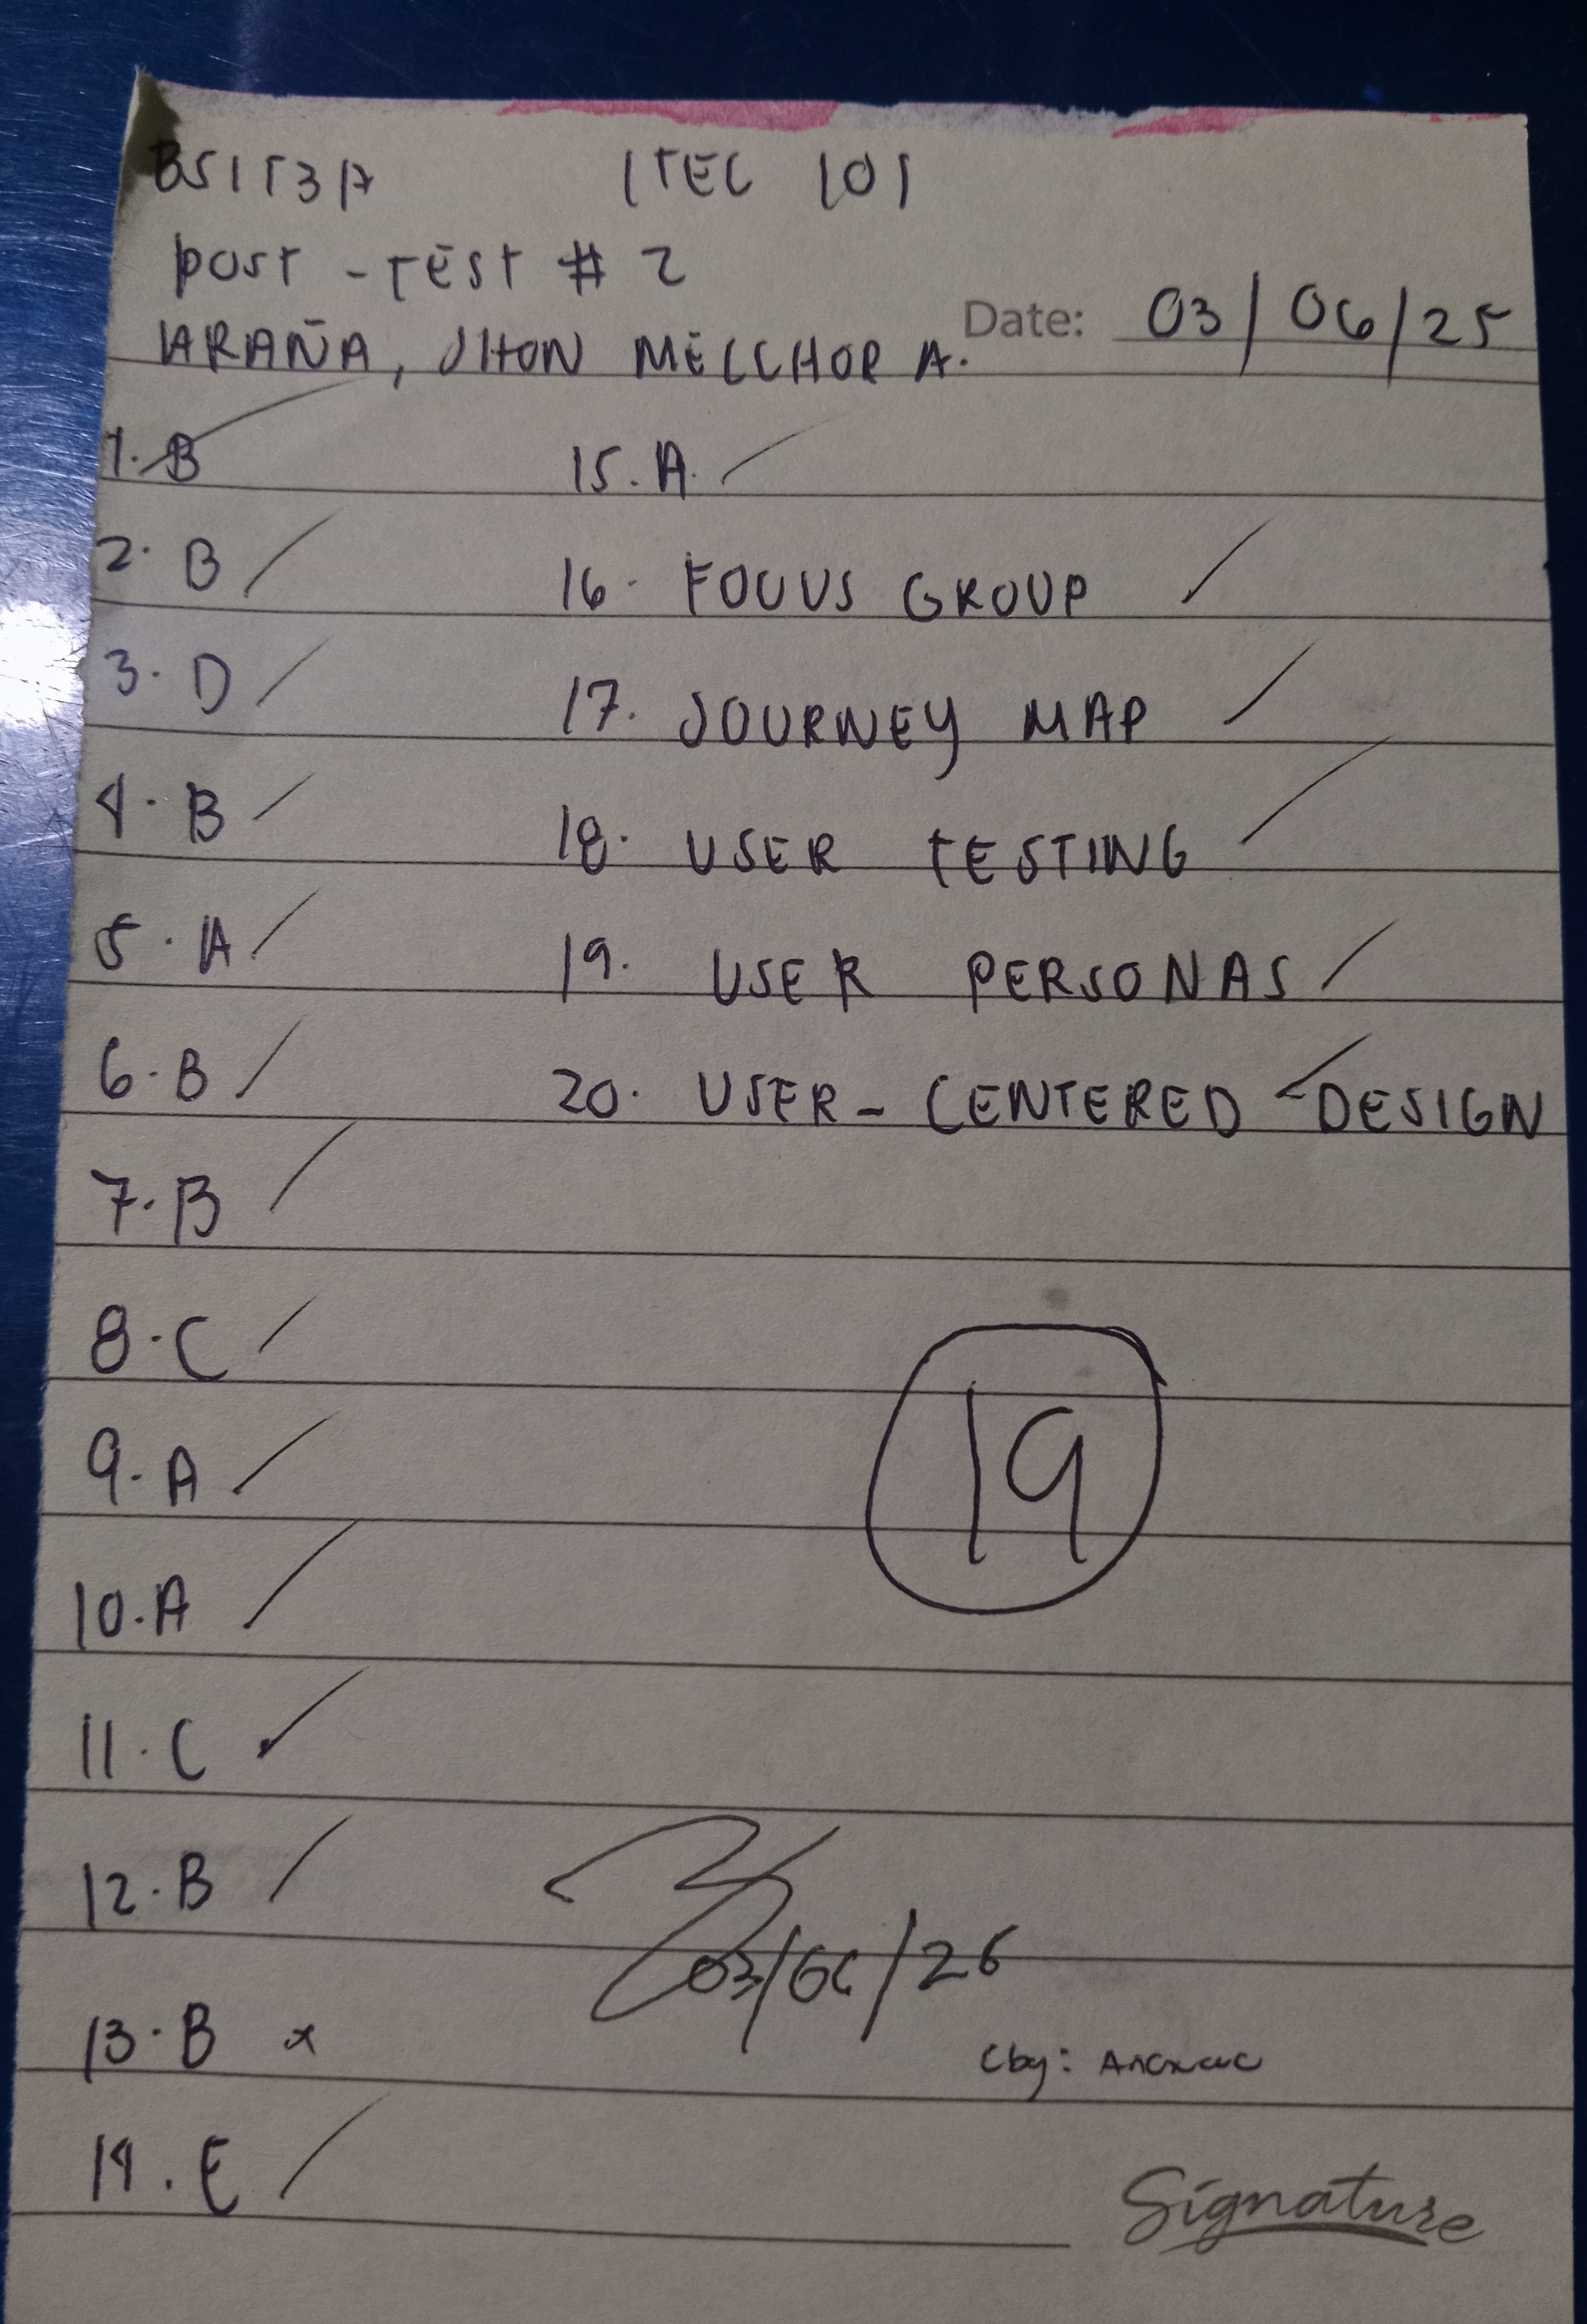 BSIT3A ITEC 101
POST - TEST # 2
Date: 03/06/25
ARAÑA, JHON MELCHOR A.
1. B
2. B
3. D
4. B
5. A
6. B
7. B
8. C
9. A
10. A
11. C
12. B
13. B x
14. E
15. A
16. FOCUS GROUP
17. JOURNEY MAP
18. USER TESTING
19. USER PERSONAS
20. USER - CENTERED DESIGN
19
03/06/26
Cby:
Signature